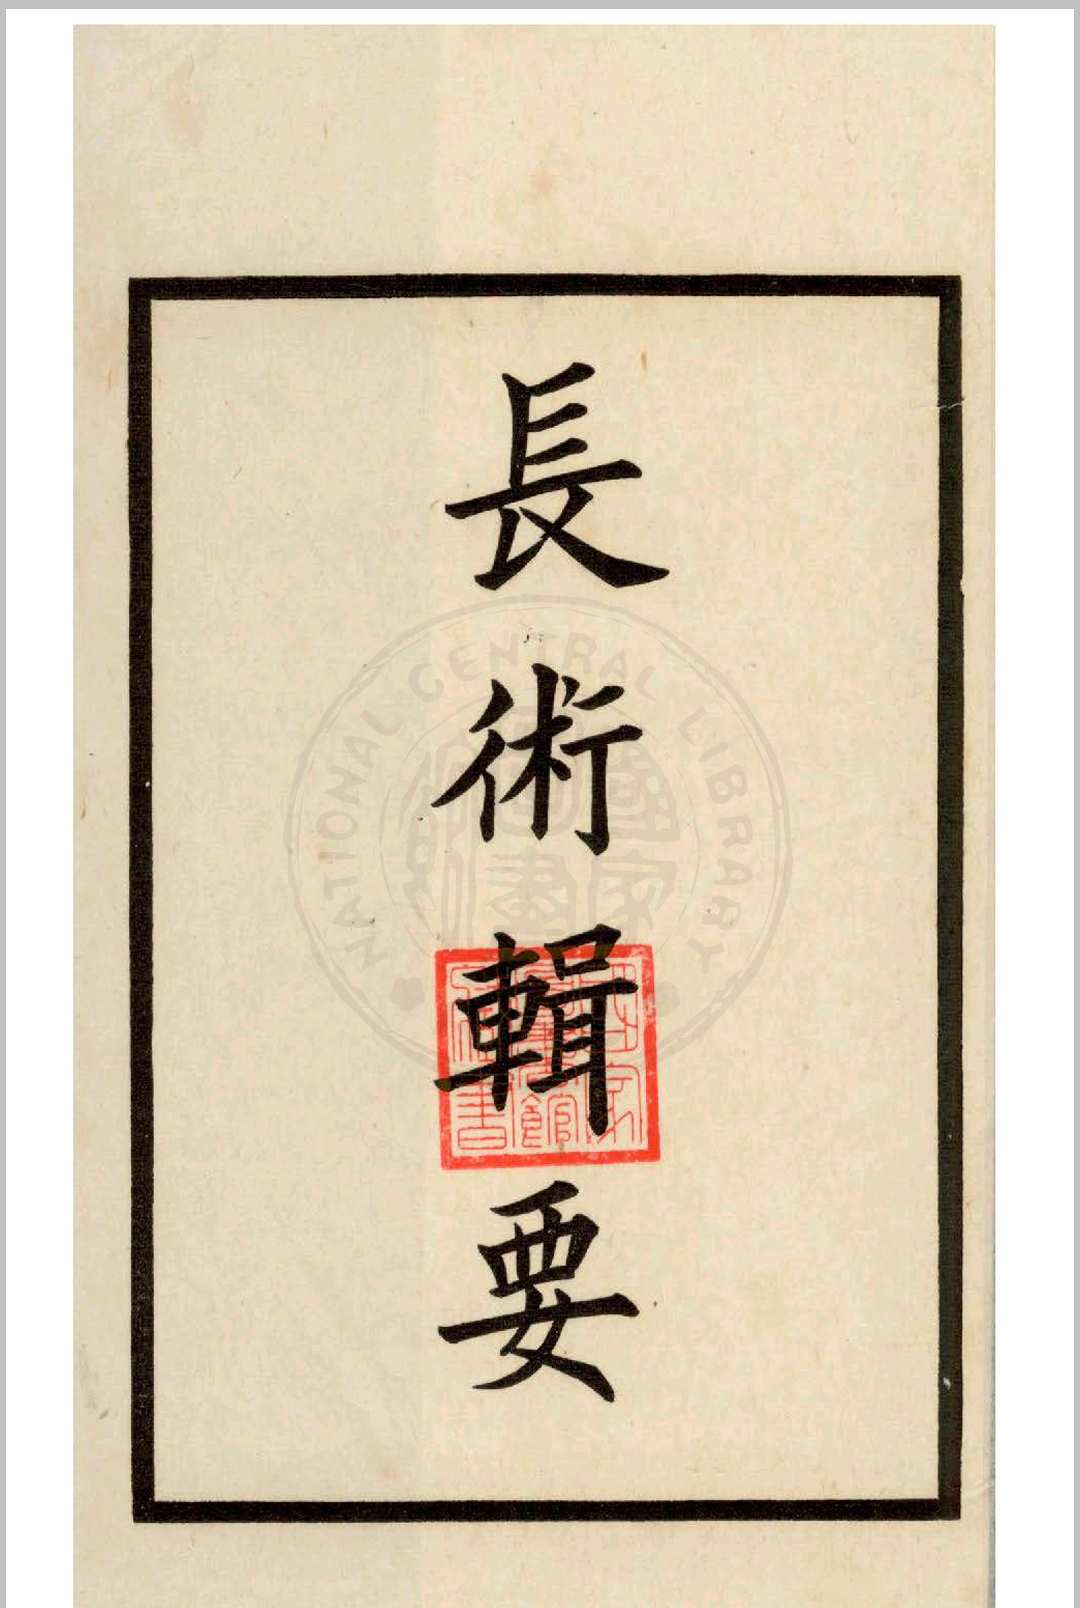 長術輯要
NATIONAL CENTRAL LIBRARY
國家
圖書